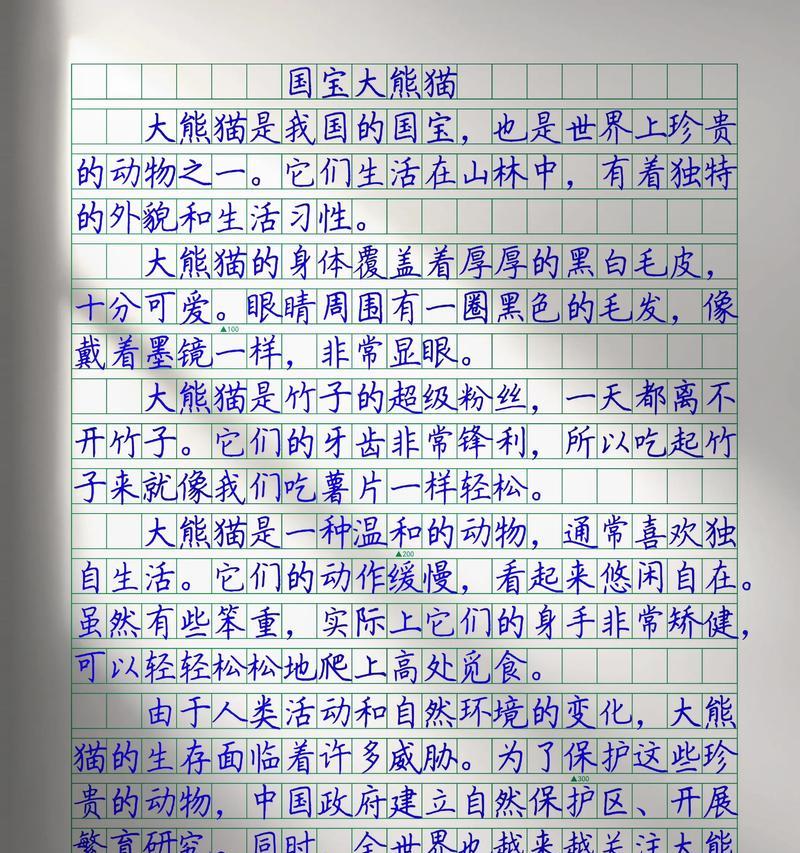 国宝大熊猫
大熊猫是我国的国宝，也是世界上珍贵
的动物之一。它们生活在山林中，有着独特
的外貌和生活习性。
大熊猫的身体覆盖着厚厚的黑白毛皮，
十分可爱。眼睛周围有一圈黑色的毛发，像
▲100
戴着墨镜一样，非常显眼。
大熊猫是竹子的超级粉丝，一天都离不
开竹子。它们的牙齿非常锋利，所以吃起竹
子来就像我们吃薯片一样轻松。
大熊猫是一种温和的动物，通常喜欢独
▲200
自生活。它们的动作缓慢，看起来悠闲自在。
虽然有些笨重，实际上它们的身手非常矫健，
可以轻轻松松地爬上高处觅食。
由于人类活动和自然环境的变化，大熊
猫的生存面临着许多威胁。为了保护这些珍
▲300
贵的动物，中国政府建立自然保护区、开展
繁育研究。同时，全世界也越来越关注大熊